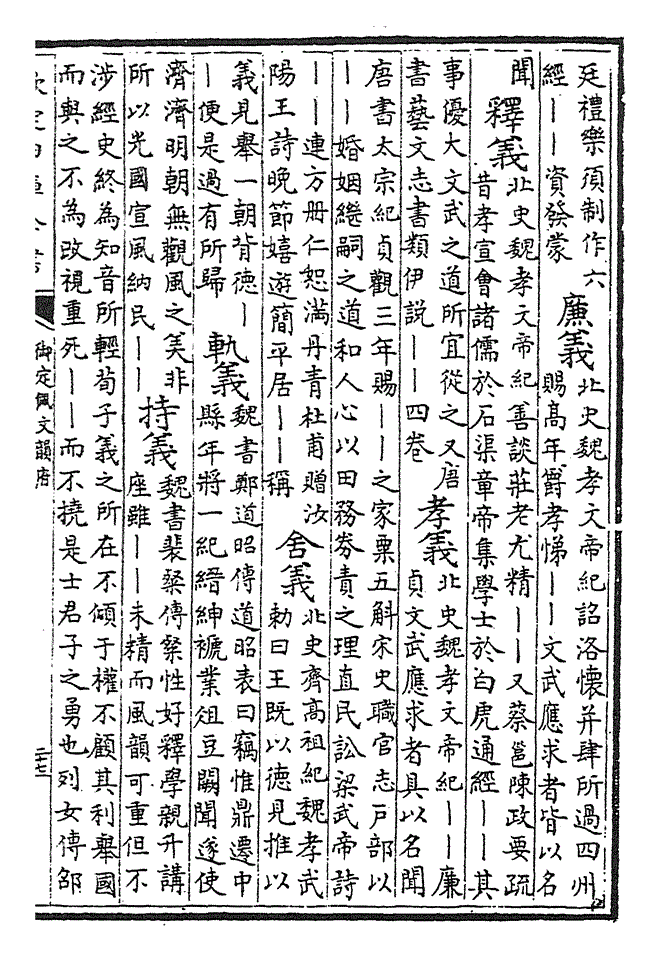 廷禮樂須制作六
經——資發蒙
廉義
北史魏孝文帝紀詔洛懷并肆所過四州
賜高年爵孝悌——文武應求者皆以名
聞
釋義
北史魏孝文帝紀善談莊老尤精——又蔡邕陳政要疏
昔孝宣會諸儒於石渠章帝集學士於白虎通經——其
事優大文武之道所宜從之又唐
書藝文志書類伊説——四卷
孝義
北史魏孝文帝紀——廉
貞文武應求者具以名聞
唐書太宗紀貞觀三年賜——之家粟五斛宋史職官志戸部以
——婚姻繼嗣之道和人心以田務券責之理直民訟梁武帝詩
——連方册仁恕滿丹青杜甫贈汝
陽王詩晚節嬉遊簡平居——稱
舍義
北史齊高祖紀魏孝武
勅曰王既以德見推以
義見舉一朝背德—
—便是過有所歸
軌義
魏書鄭道昭傳道昭表曰竊惟鼎遷中
縣年將一紀縉紳褫業俎豆闕聞遂使
濟濟明朝無觀風之美非
所以光國宣風納民——
持義
魏書裴粲傳粲性好釋學親升講
座雖——未精而風韻可重但不
涉經史終為知音所輕荀子義之所在不傾于權不顧其利舉國
而與之不為改視重死——而不撓是士君子之勇也列女傳郃
御定佩文韻府